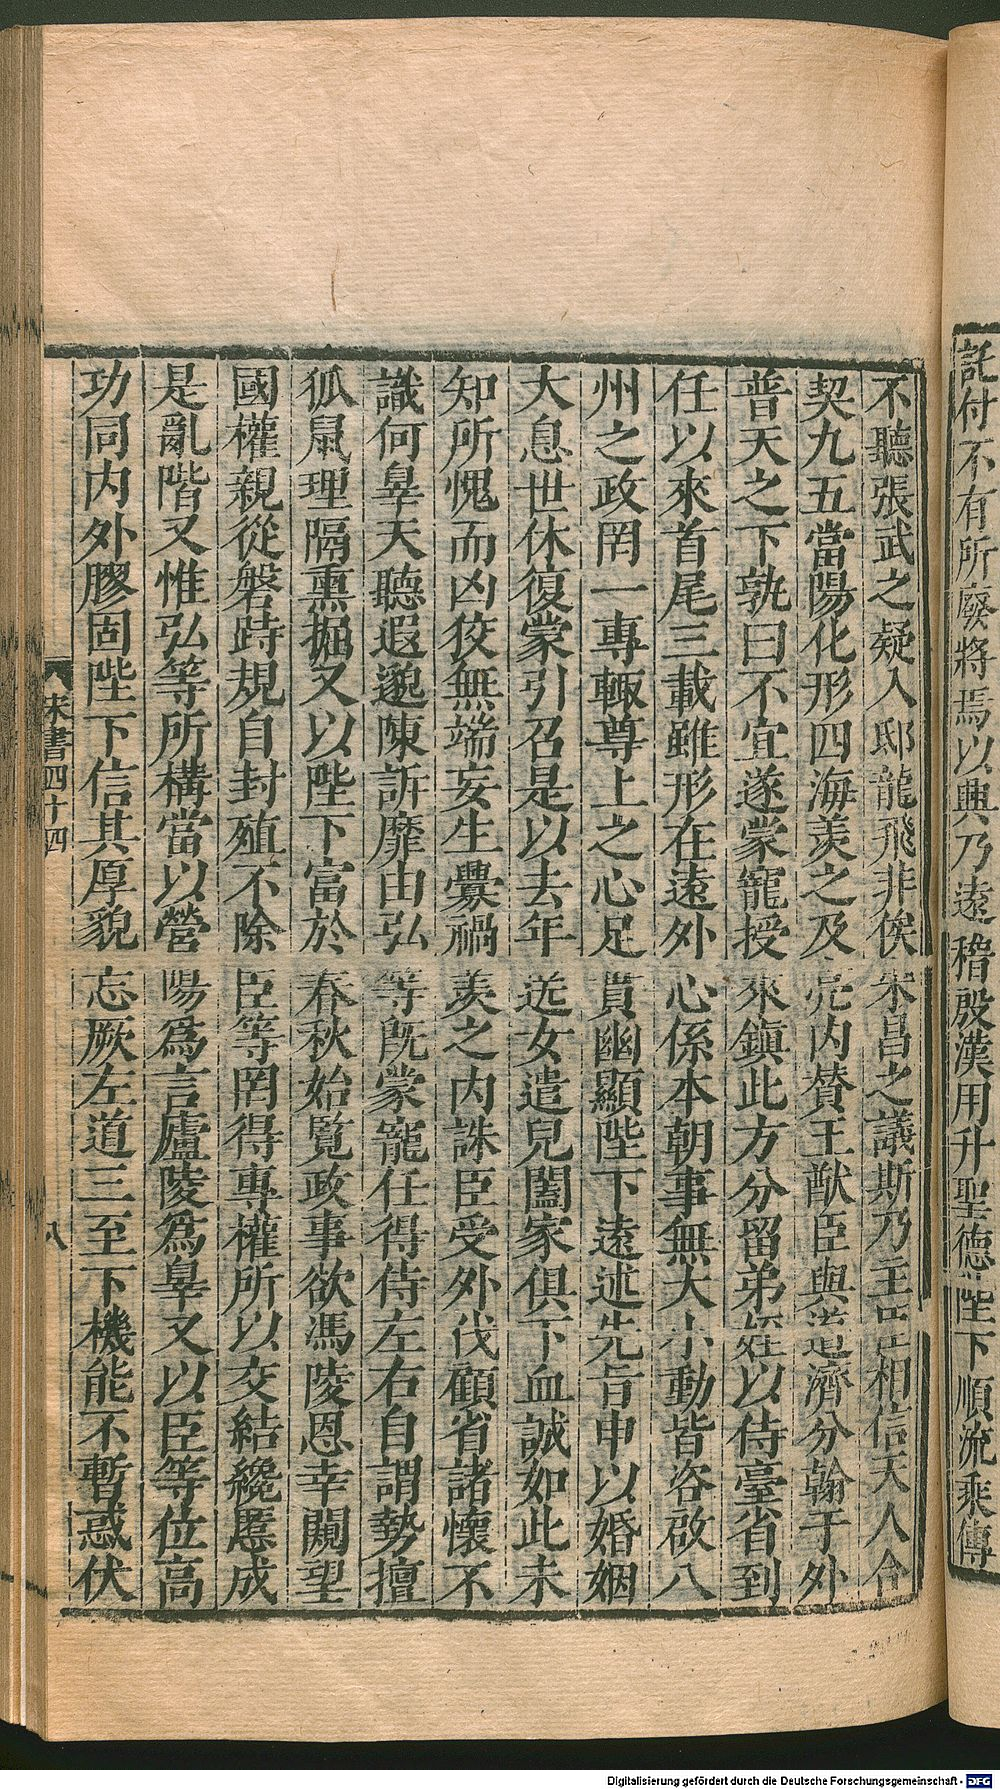 託付不有所廢將焉以興乃遠稽殷漢用升聖德陛下順流乘傳
不聽張武之疑入邸龍飛非俟宋昌之議斯乃主臣相信天人合
契九五當陽化形四海羨之及亮內贊王猷臣與道濟分翰于外
普天之下孰曰不宜遂蒙寵授來鎮此方分留弟姪以侍臺省到
任以來首尾三載雖形在遠外心係本朝事無大小動皆咨啟八
州之政罔一專輙尊上之心足貫幽顯陛下遠述先旨申以婚姻
大息世休復蒙引召是以去年送女遣兒闔家俱下血誠如此未
知所愧而凶狡無端妄生釁禍羨之內誅臣受外伐顧省諸懷不
識何辠天聽遐邈陳訴靡由弘等既蒙寵任得侍左右自謂勢擅
狐鼠理隔熏掘又以陛下富於春秋始覽政事欲馮陵恩幸闚望
國權親從磐跱規自封殖不除臣等罔得專權所以交結纔慝成
是亂階又惟弘等所構當以營陽為言廬陵為辠又以臣等位高
功同內外膠固陛下信其厚貌忘厥左道三至下機能不暫惑伏
宋書四十四
八
Digitalisierung gefördert durch die Deutsche Forschungsgemeinschaft - DFG